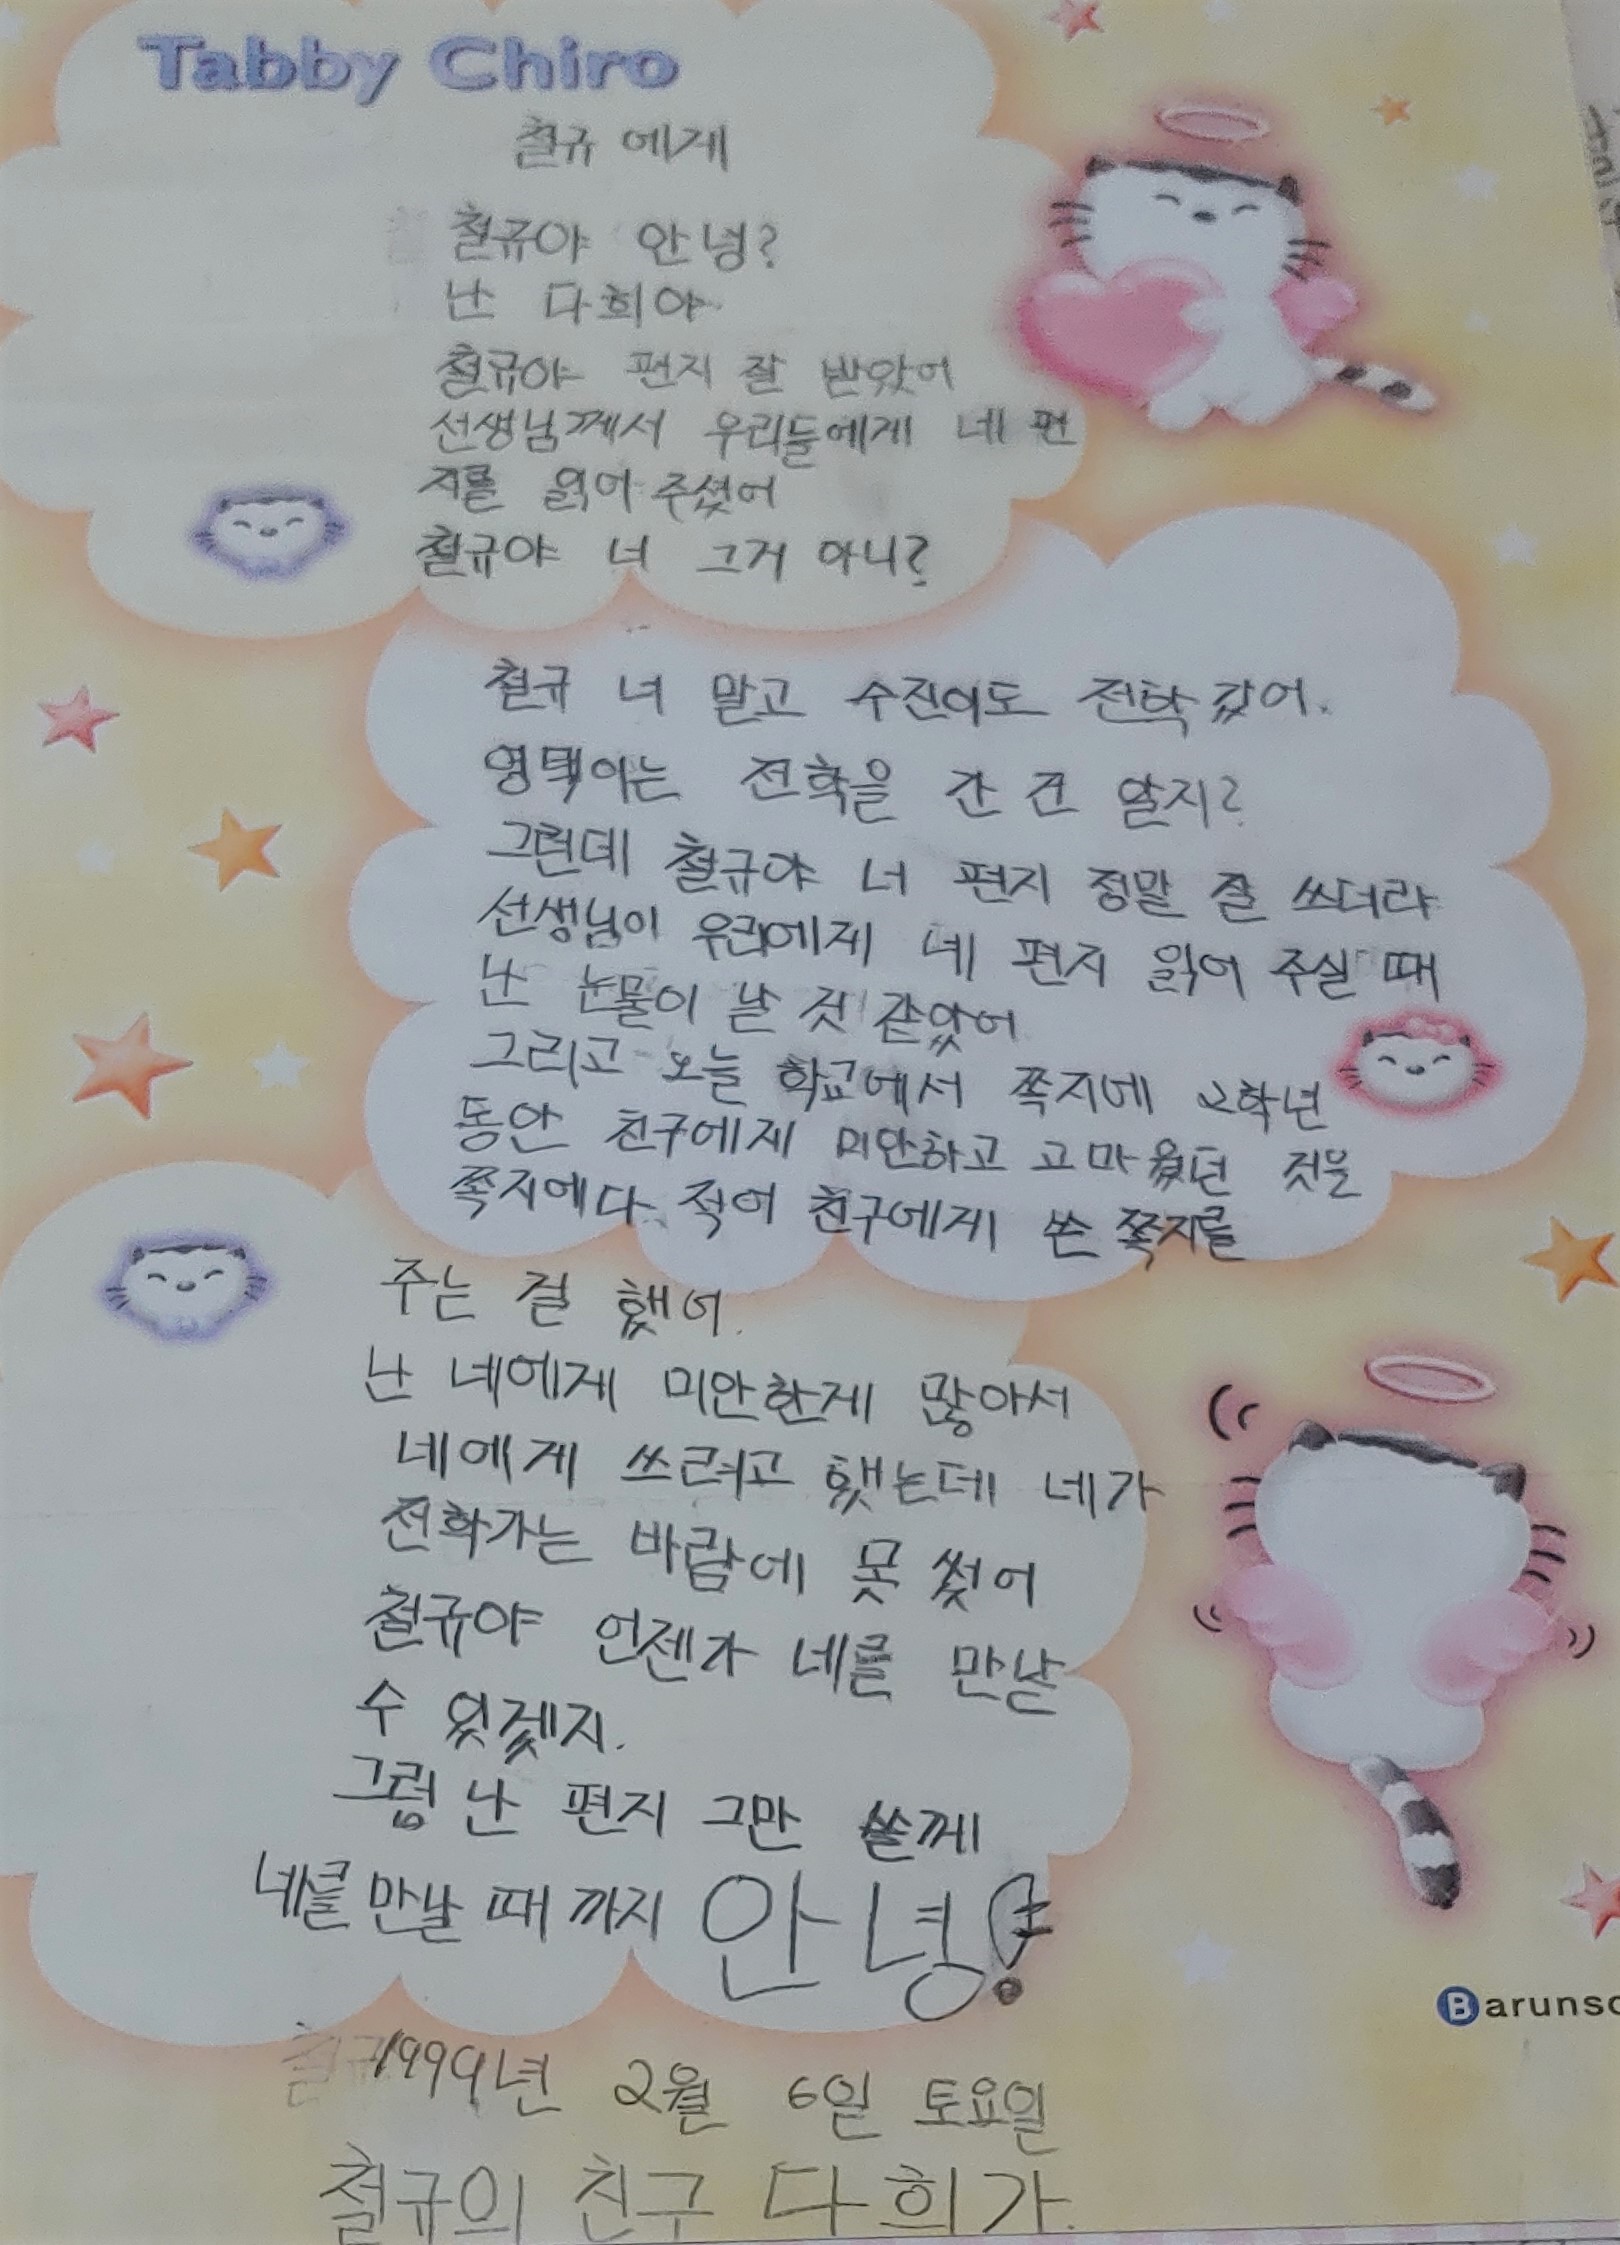 Tabby Chiro
철규에게
철규야 안녕?
난 다희야
철규야 편지 잘 받았어
선생님께서 우리들에게 네 편
지를 읽어 주셨어
철규야 너 그거 아니?
철규 너 말고 수진이도 전학 갔어.
영택이는 전학을 간 건 알지?
그런데 철규야 너 편지 정말 잘 쓰더라
선생님이 우리에게 네 편지 읽어 주실 때
난 눈물이 날 것 같았어
그리고 오늘 학교에서 쪽지에 2학년
동안 친구에게 미안하고 고마웠던 것을
쪽지에다 적어 친구에게 쓴 쪽지를
주는 걸 했어.
난 네에게 미안한게 많아서
네에게 쓰려고 했는데 네가
전학가는 바람에 못 썼어
철규야 언젠가 네를 만날
수 있겠지.
그럼 난 편지 그만 쓸께
네를 만날 때 까지 안녕!
Barunso
1999년 2월 6일 토요일
철규의 친구 다희가.